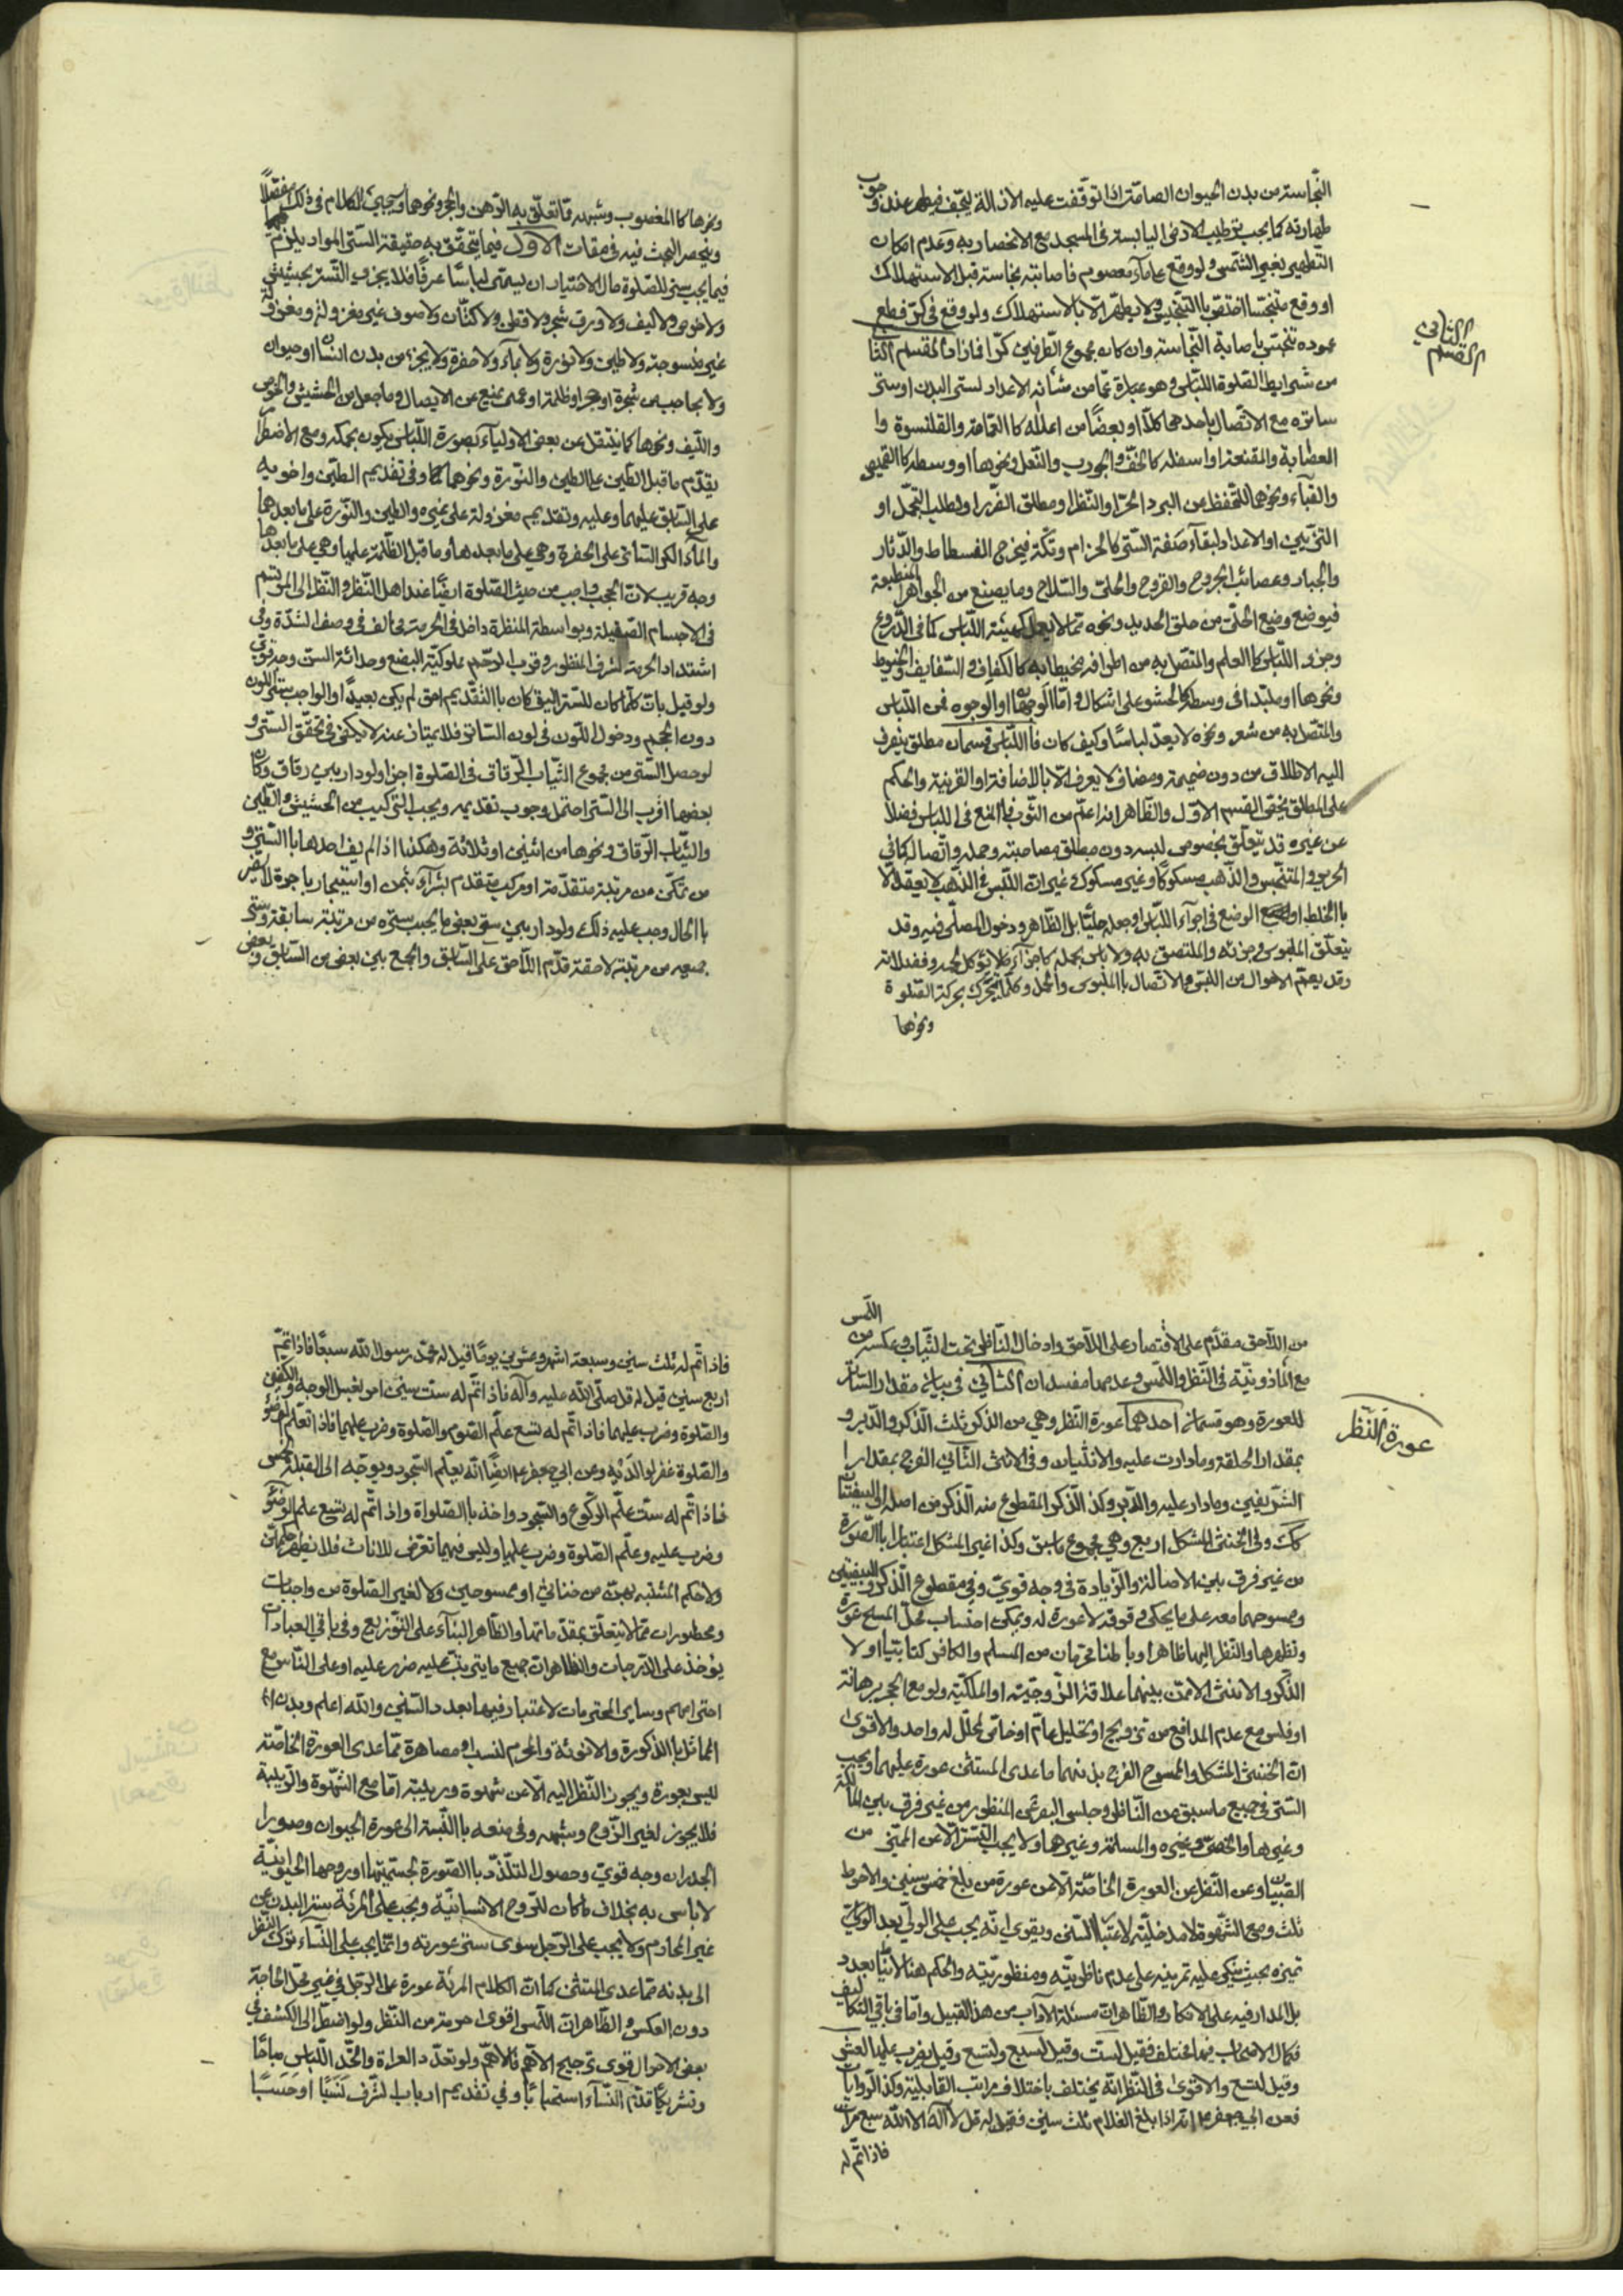 النجاسة من بدن الحيوان الصامت اذا توقفت عليه الازالة ليجف فيطهر عند وجوب
طهارته كما يجب ترطيب الارض اليابسة في المسجد مع الانحصار به وعدم امكان
التطهير بغير الشمس ولو وقع على ماء معصوم فاصابته نجاسة قبل الاستهلاك
او وقع متنجسا اختص بالتنجيس ولا يطهر الا بالاستهلاك ولو وقع في كر فطع
عموده تنجس باصابة النجاسة وان كان مجموع الطرفين كرا فازاد القسم الثا
من شرايط الصلوة اللباس وهو عبارة عما من شأنه الاعداد لستر البدن او ستر
ساتره مع الاتصال باحدهما كلا او بعضا من اعلاه كالعمامة والقلنسوة وا
العصابة والمقنعة او اسفله كالخف والجورب والنعل ونحوها او وسطه كالقميص
والقباء ونحوها للتحفظ عن البرد الحر او النظر او مطلق الضرر او لطلب التجمل او
التزيين او الاعداد لبقاء صفة الستر كالحزام وتكة فيخرج الفسطاط والدثار
والجباير وعصائب الجروح والقروح والحلي والسلاح وما يصنع من الجواهر المنطبعة
فيوضع وضع الحلي من حلق الحديد ونحوه مما لا يعمل كهيئة اللباس كما في الدروع
وجزو اللباس كالعلم والمتصل به من اطرافه بخياطة كالكفاف والسفايف والخيوط
ونحوها او ملبدا في وسطه كالحشو على اشكال واما الوجهان او الوجوه فمن اللباس
والمتصل به من شعر ونحوه لا يعد لباسا وكيف كان فاللباس قسمان مطلق ينصرف
اليه الاطلاق من دون ضميمة ومضاف لا يعرف الا بالاضافة او القرينة والحكم
على المطلق يخص القسم الاول والظاهر انه اعم من الثوب فالمنع في اللباس فضلا
عن غيره قد يتعلق بخصوص لبسه دون مطلق مصاحبته وحمله واتصاله كما في
الحرير والمتنجس والذهب مسكوكا وغير مسكوك غير ان اللبس في الذهب لا يعقل الا
بالخلط او الوضع في اجزاء اللباس او جعله حليا بل الظاهر دخول المصلي فيه وقد
يتعلق الملبوس وجزئه والملتصق به ولا باس بحمله كاجزاء ما لا يؤكل لحمه وفضلاته
وقد يعم الاحوال من اللبس والاتصال بالملبوس والحمل وكلما يتحرك بحركة الصلوة
ونحوها
القسم الثاني
ونحوها كالمغصوب وشبهه مما تعلق به الرهن والحجر ونحوها وسيجيئ الكلام في ذلك مفصلا
وينحصر البحث فيه في مقامات الاول فيما يتحقق به حقيقة الستر المراد يلزم
فيما يجب ستره للصلوة حال الاختيار ان يسمى لباسا عرفا فلا يجزي التستر بحشيش
ولا خوص ولا ليف ولا ورق شجر ولا قطن ولا كتان ولا صوف غير مغزولة ومغزولة
غير منسوجة ولا طين ولا نورة ولا ماء ولا حفرة ولا بجزء من بدن انسان او حيوان
ولا بحاجب من شجرة او حجر او ظلمة او عمى يمنع عن الابصار وما جعل من الحشيش والخوص
والليف ونحوها كما ينقل عن بعض الاولياء بصورة اللباس يكون بحكمه ومع الاضطرار
يقدم ما قبل الطين على الطين والنورة ونحوهما وفي تقديم الطين واخويه
على السابق عليهما وعليه وتقديم مغزوله على غيره والطين والنورة على ما بعدهما
والماء الكدر الساتر على الحفرة وهي على ما بعدها وما قبل الظلمة عليها وهي على ما بعدها
وجه قريب لان الحجب واجب من حيث الصلوة ايضا عند اهل النظر والنظر الى المرتسم
في الاجسام الصقيلة وبواسطة المنظرة داخل في الحرمة مخالف في وصف الشدة وفي
اشتداد الحرمة لشرف المنظور وقرب الرحم ومملوكية البضع وحداثة السن وجه قوي
ولو قيل بان كلما كان للستر اليق كان بالتقديم احق لم يكن بعيدا والواجب ستر اللون
دون الحجم ودخول اللون في لون الساتر فلا يمتاز عنه لا يكفي في تحقق الستر و
لو حصل الستر من مجموع الثياب الرقاق في الصلوة اجزا ولو دار بين رقاق وكان
بعضها اقرب الى الستر احتمل وجوب تقديمه ويجب التركيب من الحشيش والطين
والثياب الرقاق ونحوها من اثنين او ثلاثة وهكذا اذا لم يف احدها بالستر و
من تمكن من مرتبة متقدمة او مركب متقدم بشراء بثمن او استيجار باجرة لا تضر
بالحال وجب عليه ذلك ولو دار بين ستر بعض ما يجب ستره من مرتبة سابقة وستر
جميعه من مرتبة لاحقة قدم اللاحق على السابق والجمع بين بعض من السابق وبعض
من اللاحق مقدم على الاقتصار على اللاحق وادخال الناظر تحت الثياب وعكسه من اللمس
مع الماذونية في النظر واللمس وعدمها مفسدان الثاني في بيان مقدار الساتر
للعورة وهو قسمان احدهما عورة النظر وهي من الذكر ثلث الذكر والدبر و
بمقدار الحلقة وما دارت عليه والانثيان وفي الانثى اثنان الفرج بمقدار ا
الشفرين وما دار عليه والدبر وكذا الذكر المقطوع منه الذكر من اصله او البيضتان
كك وفي الخنثى المشكل اربع وهي مجموع ما سبق وكذا غير المشكل اعتبارا بالصورة
من غير فرق بين الاصالة والزيادة في وجه قوي وفي مقطوع الذكر والبيضتين
وممسوحهما معه على ما يحكى وقوفه لا عورة له ويمكن احتساب محل المسح عورة
ونظرها والنظر اليها ظاهرا وباطنا محرمان من المسلم والكافر كتابيا او لا
الذكر والانثى الا من بينهما علاقة الزوجية او الملكية ولو مع الحجر برهانة
او فلس مع عدم المدافع من تزويج او تحليل عام او خاص لمحلل له واحد والاقوى
ان الخنثى المشكل والممسوح الفرج بدنهما ما عدى المستثنى عورة عليهما ويجب
الستر في جميع ما سبق من الناظر وحابس البصر عن المنظور من غير فرق بين المالكة
وغيرها والخصي وغيره والمسلمة وغيرهما ولا يجب التستر الا عن المميز من
الصبيان وعن النظر عن العورة الخاصة الا من عورة من بلغ خمس سنين والاحوط
ثلث ومع الشهوة لا مدخلية لاعتبار السن ويقوى انه يجب على الولي بعد الوكالة
تميزه بحيث يبكي عليه تمرينه على عدم ناظريته ومنظوريته والحكم هنا لا يناط بعدد
بل المدار فيه على الافكار والظاهر ان مسئلة الآداب من هذا القبيل واما في باقي التكاليف
فكمال الاصحاب فيها مختلف فقيل لست وقيل لسبع ولتسع وقيل يضرب عليها لعشر
وقيل لتسع والاقوى في النظر انه يختلف باختلاف مراتب القابلية وكذا الروايات
فعن ابي جعفر ع انه اذا بلغ الغلام ثلث سنين فقيل له قل لا اله الا الله سبع مرات
فاذا تم له
عورة النظر
فاذا تم له ثلث سنين وسبعة اشهر وعشرين يوما قيل له محمد رسول الله سبعا فاذا تم
اربع سنين قيل له قل صلى الله عليه وآله فاذا تم له ست سنين امر بغسل الوجه والكفين
والصلوة وضرب عليهما فاذا تم له تسع علم الصوم والصلوة وضرب عليهما فاذا تعلم الوضوء
والصلوة غفر لوالديه وعن ابي جعفر ع ايضا انه يعلم السجود ويوجه الى القبلة لخمس
فاذا تم له ست علم الركوع والسجود واخذ بالصلواة واذا تم له تسع علم الوضوء
وضرب عليه وعلم الصلوة وضرب عليها وليس فيهما تعرض للاناث فلا يظهر حكمهن
ولا حكم المشتبه بهن من خناثي او ممسوحين ولا لغير الصلوة من واجبات
ومحظورات مما لا يتعلق بمقدماتها والظاهر البناء على التوزيع وفي باقي العبادات
يؤخذ على الدرجات والظاهر ان جميع ما يترتب عليه ضرر عليه او على الناس مع
احترامهم وساير المحترمات لا عتبار فيها بعدد السنين والله اعلم وبدن
المماثل بالذكورة والانوثة والمحرم لنسب او مصاهرة مما عدى العورة الخاصة
ليس بعورة ويجوز النظر اليه الا عن شهوة وريبة اما مع الشهوة والريبة
فلا يجوز لغير الزوج وشبهه وفي منعه بالنسبة الى عورة الحيوان وصور ا
الجدران وجه قوي وحصول التلذذ بالصورة لجسميتها او روحها الحيوانية
لا باس به بخلاف ما كان للروح الانسانية ويجب على المرئة ستر البدن عن
غير المحارم ولا يجب على الرجل سوى ستر عورته وانما يجب على النساء ترك النظر
الى بدنه مما عدى المستثنى كما ان الكلام المرئة عورة على الرجل في غير محل الحاجة
دون العكس والظاهر ان اللمس اقوى حرمة من النظر ولو اضطر الى الكشف في
بعض الاحوال قوى ترجيح الاهم فالاهم ولو تعدد العراة واتحد اللباس مباحا
وتشريكا قدم النساء استحبابا وفي تقديم ارباب الشرف نسبا او حسبا